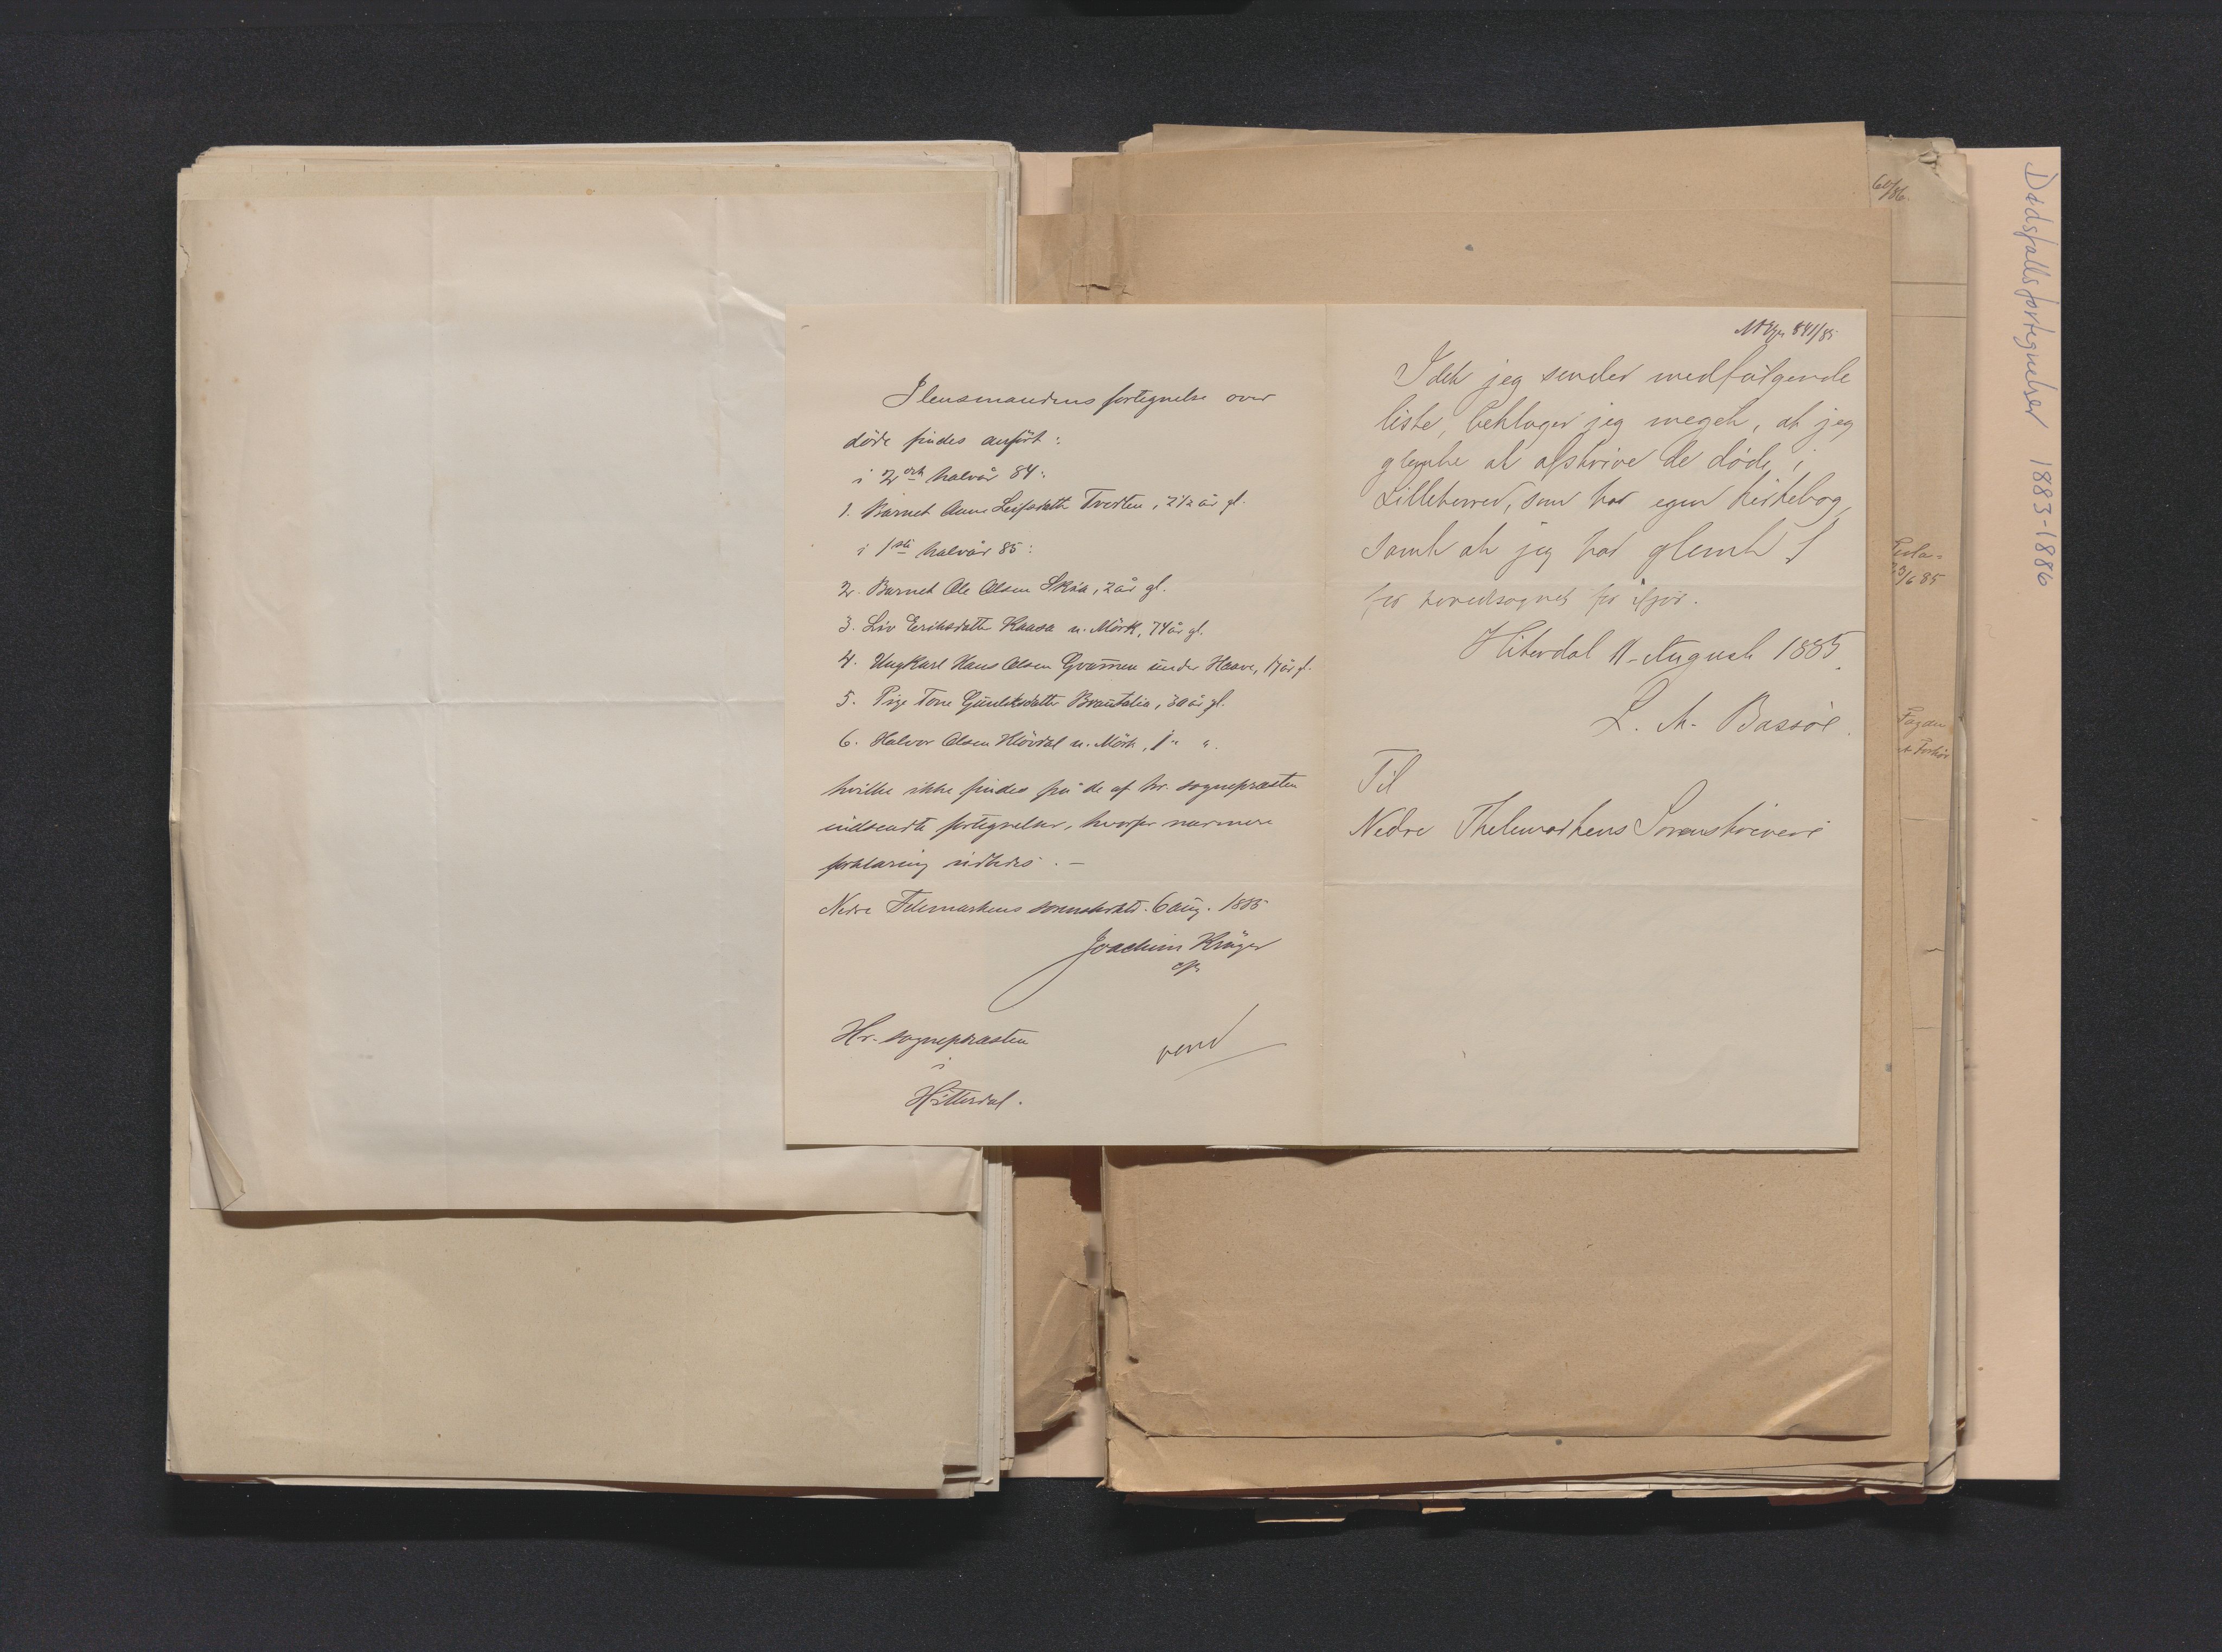 I lensmandens fortegnelse over
døde findes anført:
i 2det halvår 84:
1. Barnet Anne Leifsdatter Tveiten, 2 1/2 år gl.
i 1ste halvår 85:
2. Barnet Ole Olsen Skia, 2 år gl.
3. Liv Eriksdatter Kaasa u. Mörk, 74 år gl.
4. Ungkarl Hans Olsen Gvammen under Haave, 17 år gl.
5. Pige Tone Gunleksdatter Brautalia, 30 år gl.
6. Halvor Olsen Klövdal u. Mörk, 1 " ".
hvilke ikke findes på de af hr. sognepræsten
indsendte fortegnelser, hvorfor nærmere
forklaring udbedes. —
Nedre Telemarkens 6 aug. 1885
Joachim Krüger
Hr. sognepræsten
i
Hitterdal.
vend
841/85
Idet jeg sender medfølgende
liste, beklager jeg meget, at jeg
glemte at afskrive de døde i
Lilleherred, som har egen kirkebog,
samt at jeg har glemt 1
for hovedsognet for ifjor.
Hiterdal 11 August 1885.
L. A. Bassøe.
Til
Nedre Thelemarkens Sorenskriveri
60/86
23/6 85
Dødsfallsfortegnelser 1883-1886